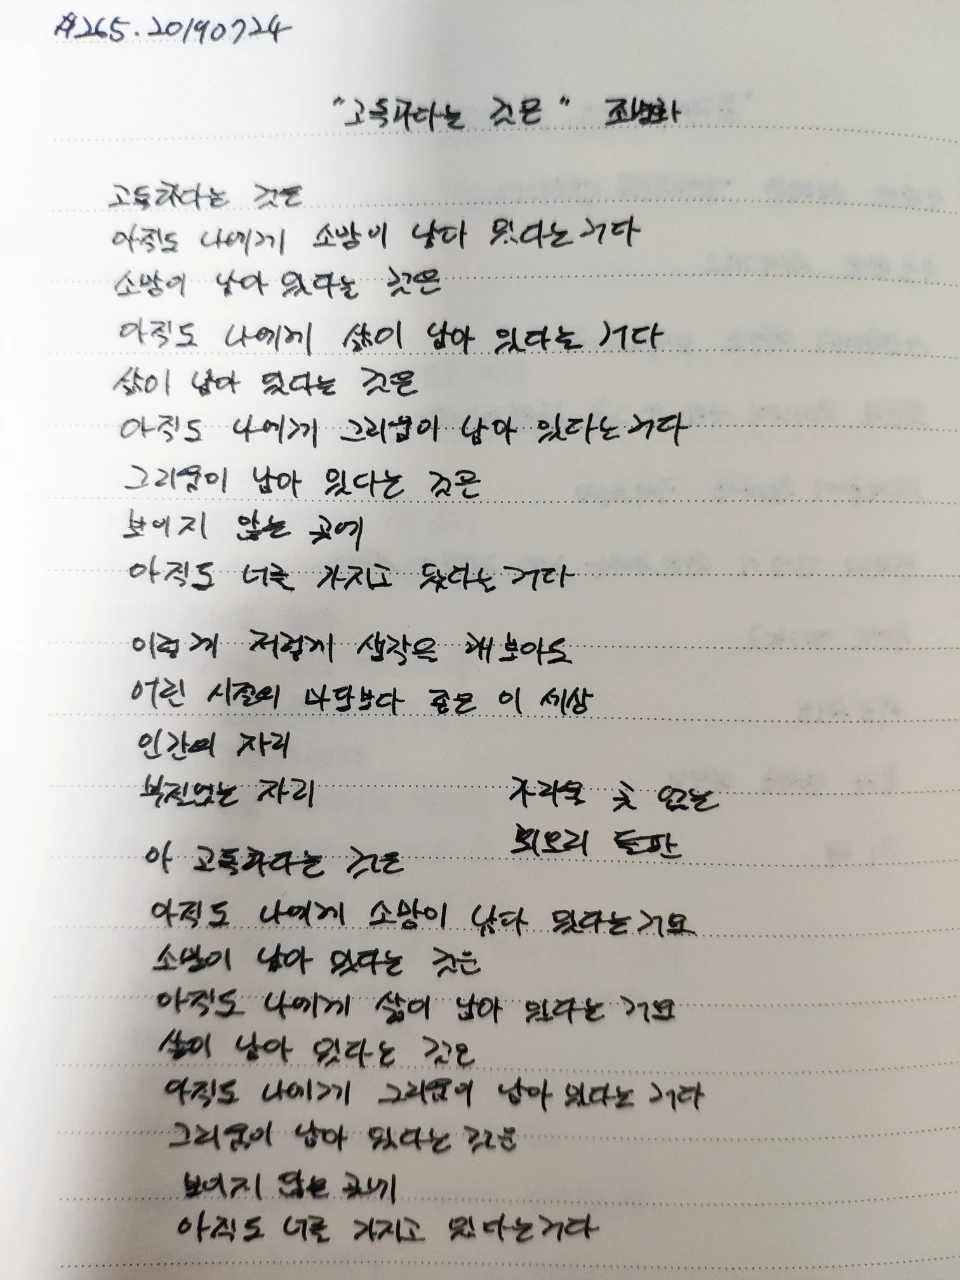 #265. 20190724
"고독하다는 것은" 조병화
고독하다는 것은
아직도 나에게 소망이 남다 있다는 거다
소망이 남아 있다는 것은
아직도 나에게 삶이 남아 있다는 거다
삶이 남아 있다는 것은
아직도 나에게 그리움이 남아 있다는 거다
그리움이 남아 있다는 것은
보이지 않는 곳에
아직도 너를 가지고 있다는 거다
이렇게 저렇게 생각을 해 보아도
어린 시절의 마당보다 좁은 이 세상
인간의 자리
부질없는 자리
가리울 곳 없는
회오리 들판
아 고독하다는 것은
아직도 나에게 소망이 남다 있다는 거요
소망이 남아 있다는 것은
아직도 나에게 삶이 남아 있다는 거요
삶이 남아 있다는 것은
아직도 나에게 그리움이 남아 있다는 거다
그리움이 남아 있다는 것은
보이지 않는 곳에
아직도 너를 가지고 있다는 거다